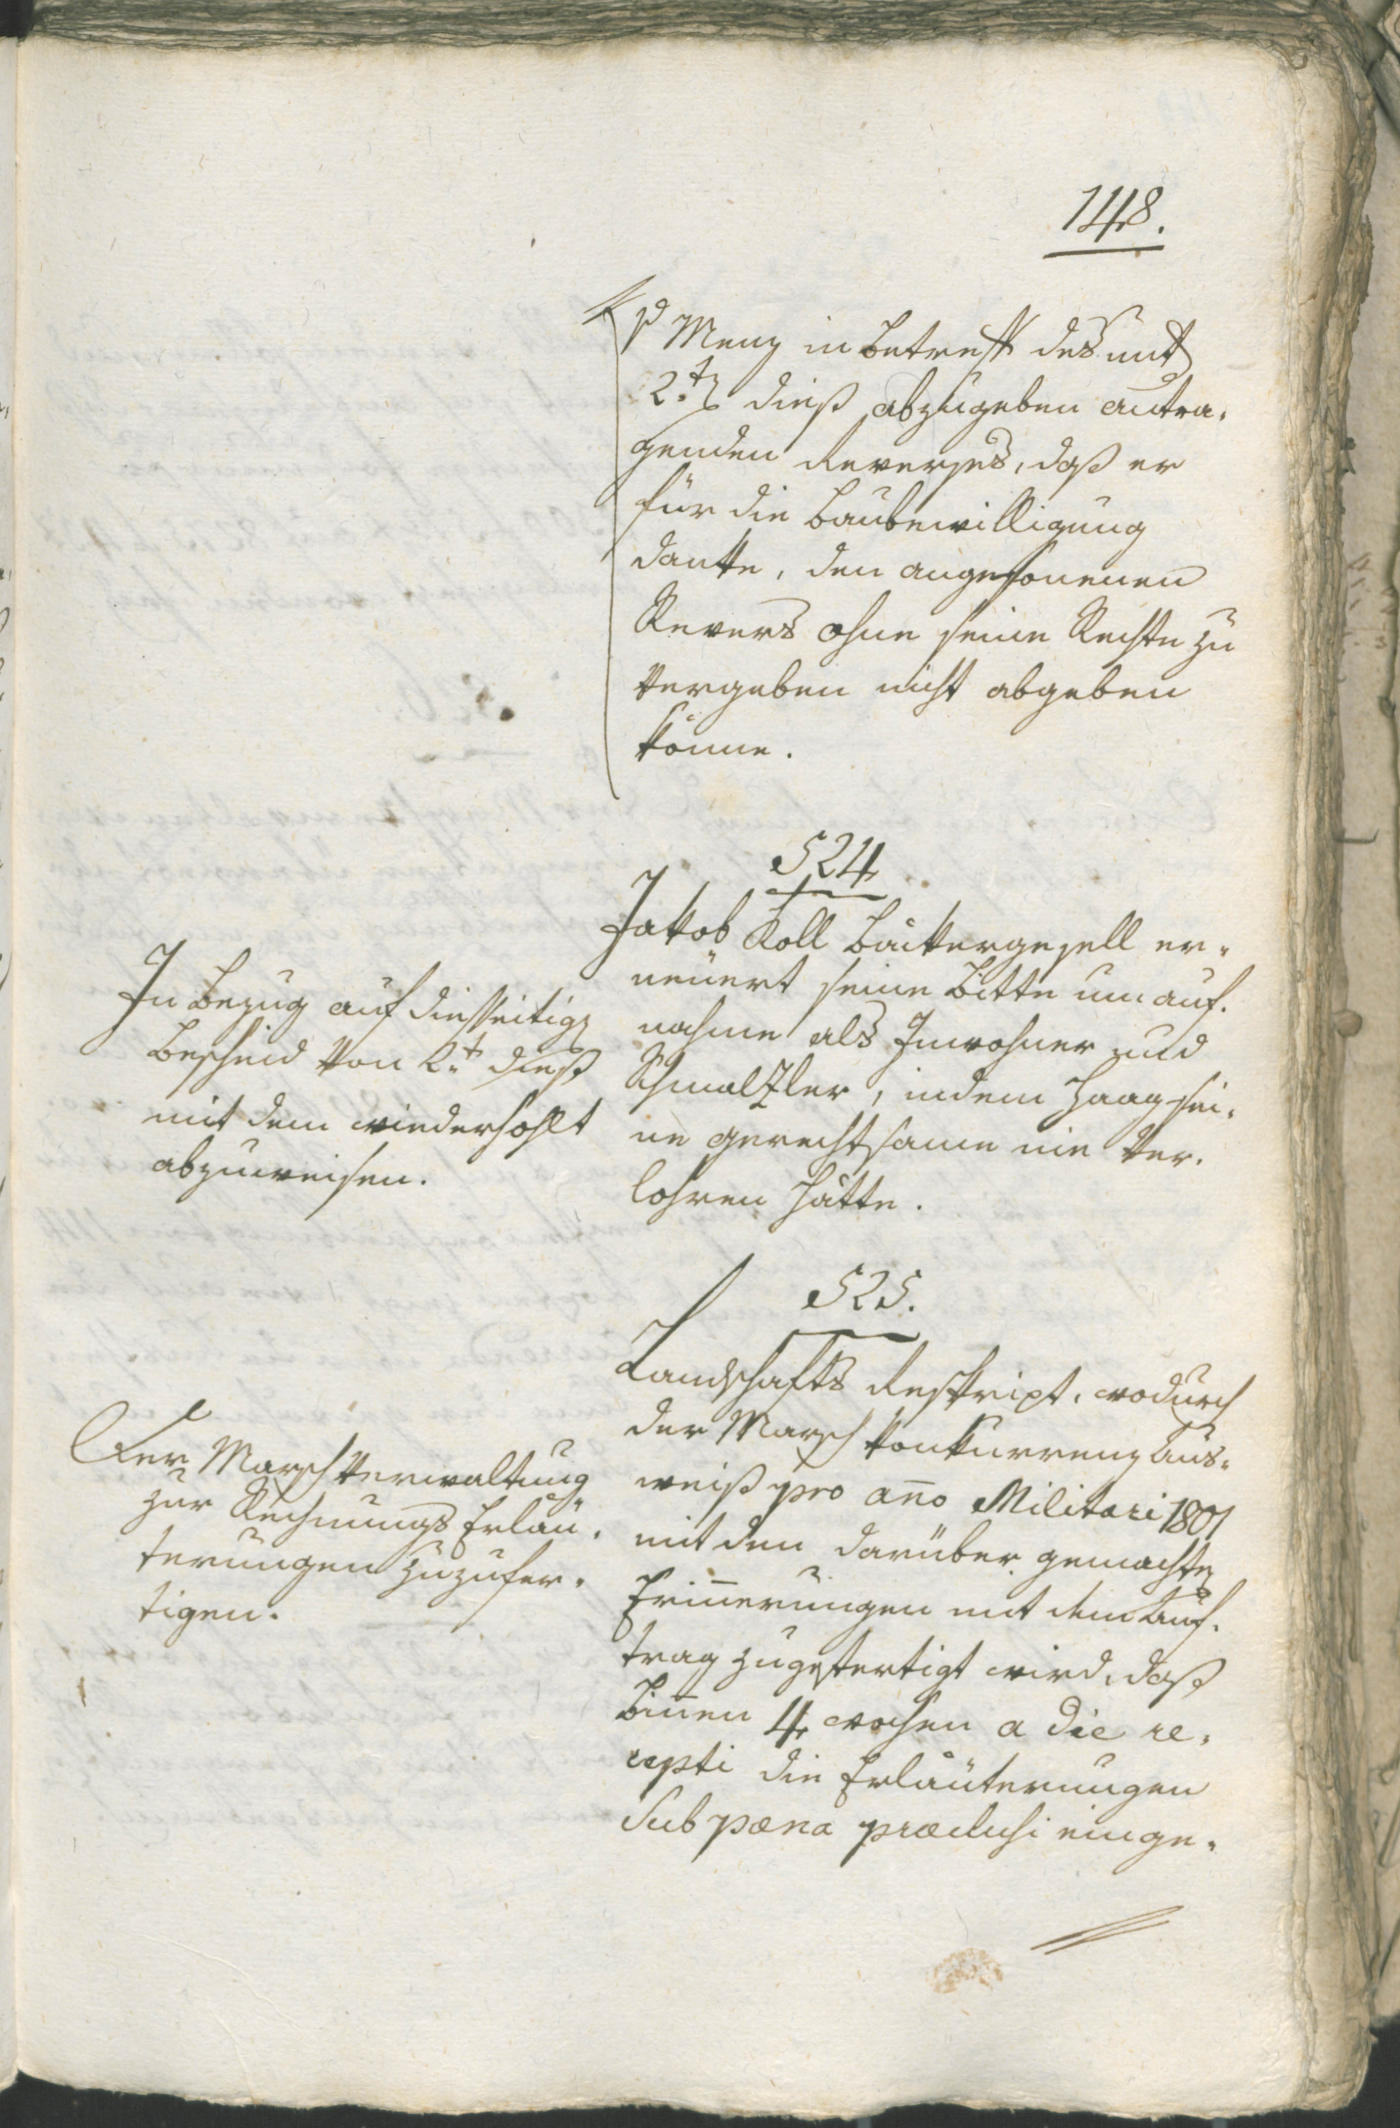 148.
v Menz in betreff des mit
2.t dieß abzugeben antra-
genden Reverses, daß er
für die Baubewilligung
danke, den angesonenen
Revers ohne seine Rechte zu
vergeben nicht abgeben
könne.
524
Jakob Koll Bäckergesell er-
neüert seine Bitte um auf-
nahme als Inwohner und
Schmalzler, indem Haag sei-
ne gerechtsame nie ver-
lohren hätte.
In Bezug auf diesseitig
Bescheid von 2.t dieß
mit dem wiederhohlt
abzuweisen.
525.
Landschafts Reskript, wodurch
der Marsch konkurrenz Aus-
weiß pro año Militari 1801
mit den darüber gemachte
Erinerungen mit dem Auf-
trag zugefertigt wird, daß
biñen 4 wochen a die re-
cepti die Erläuterungen
Sub pœna præclusi einge-
Der Marsch verwaltung
zur Rechnungs Erläu-
terungen zuzufer-
tigen.